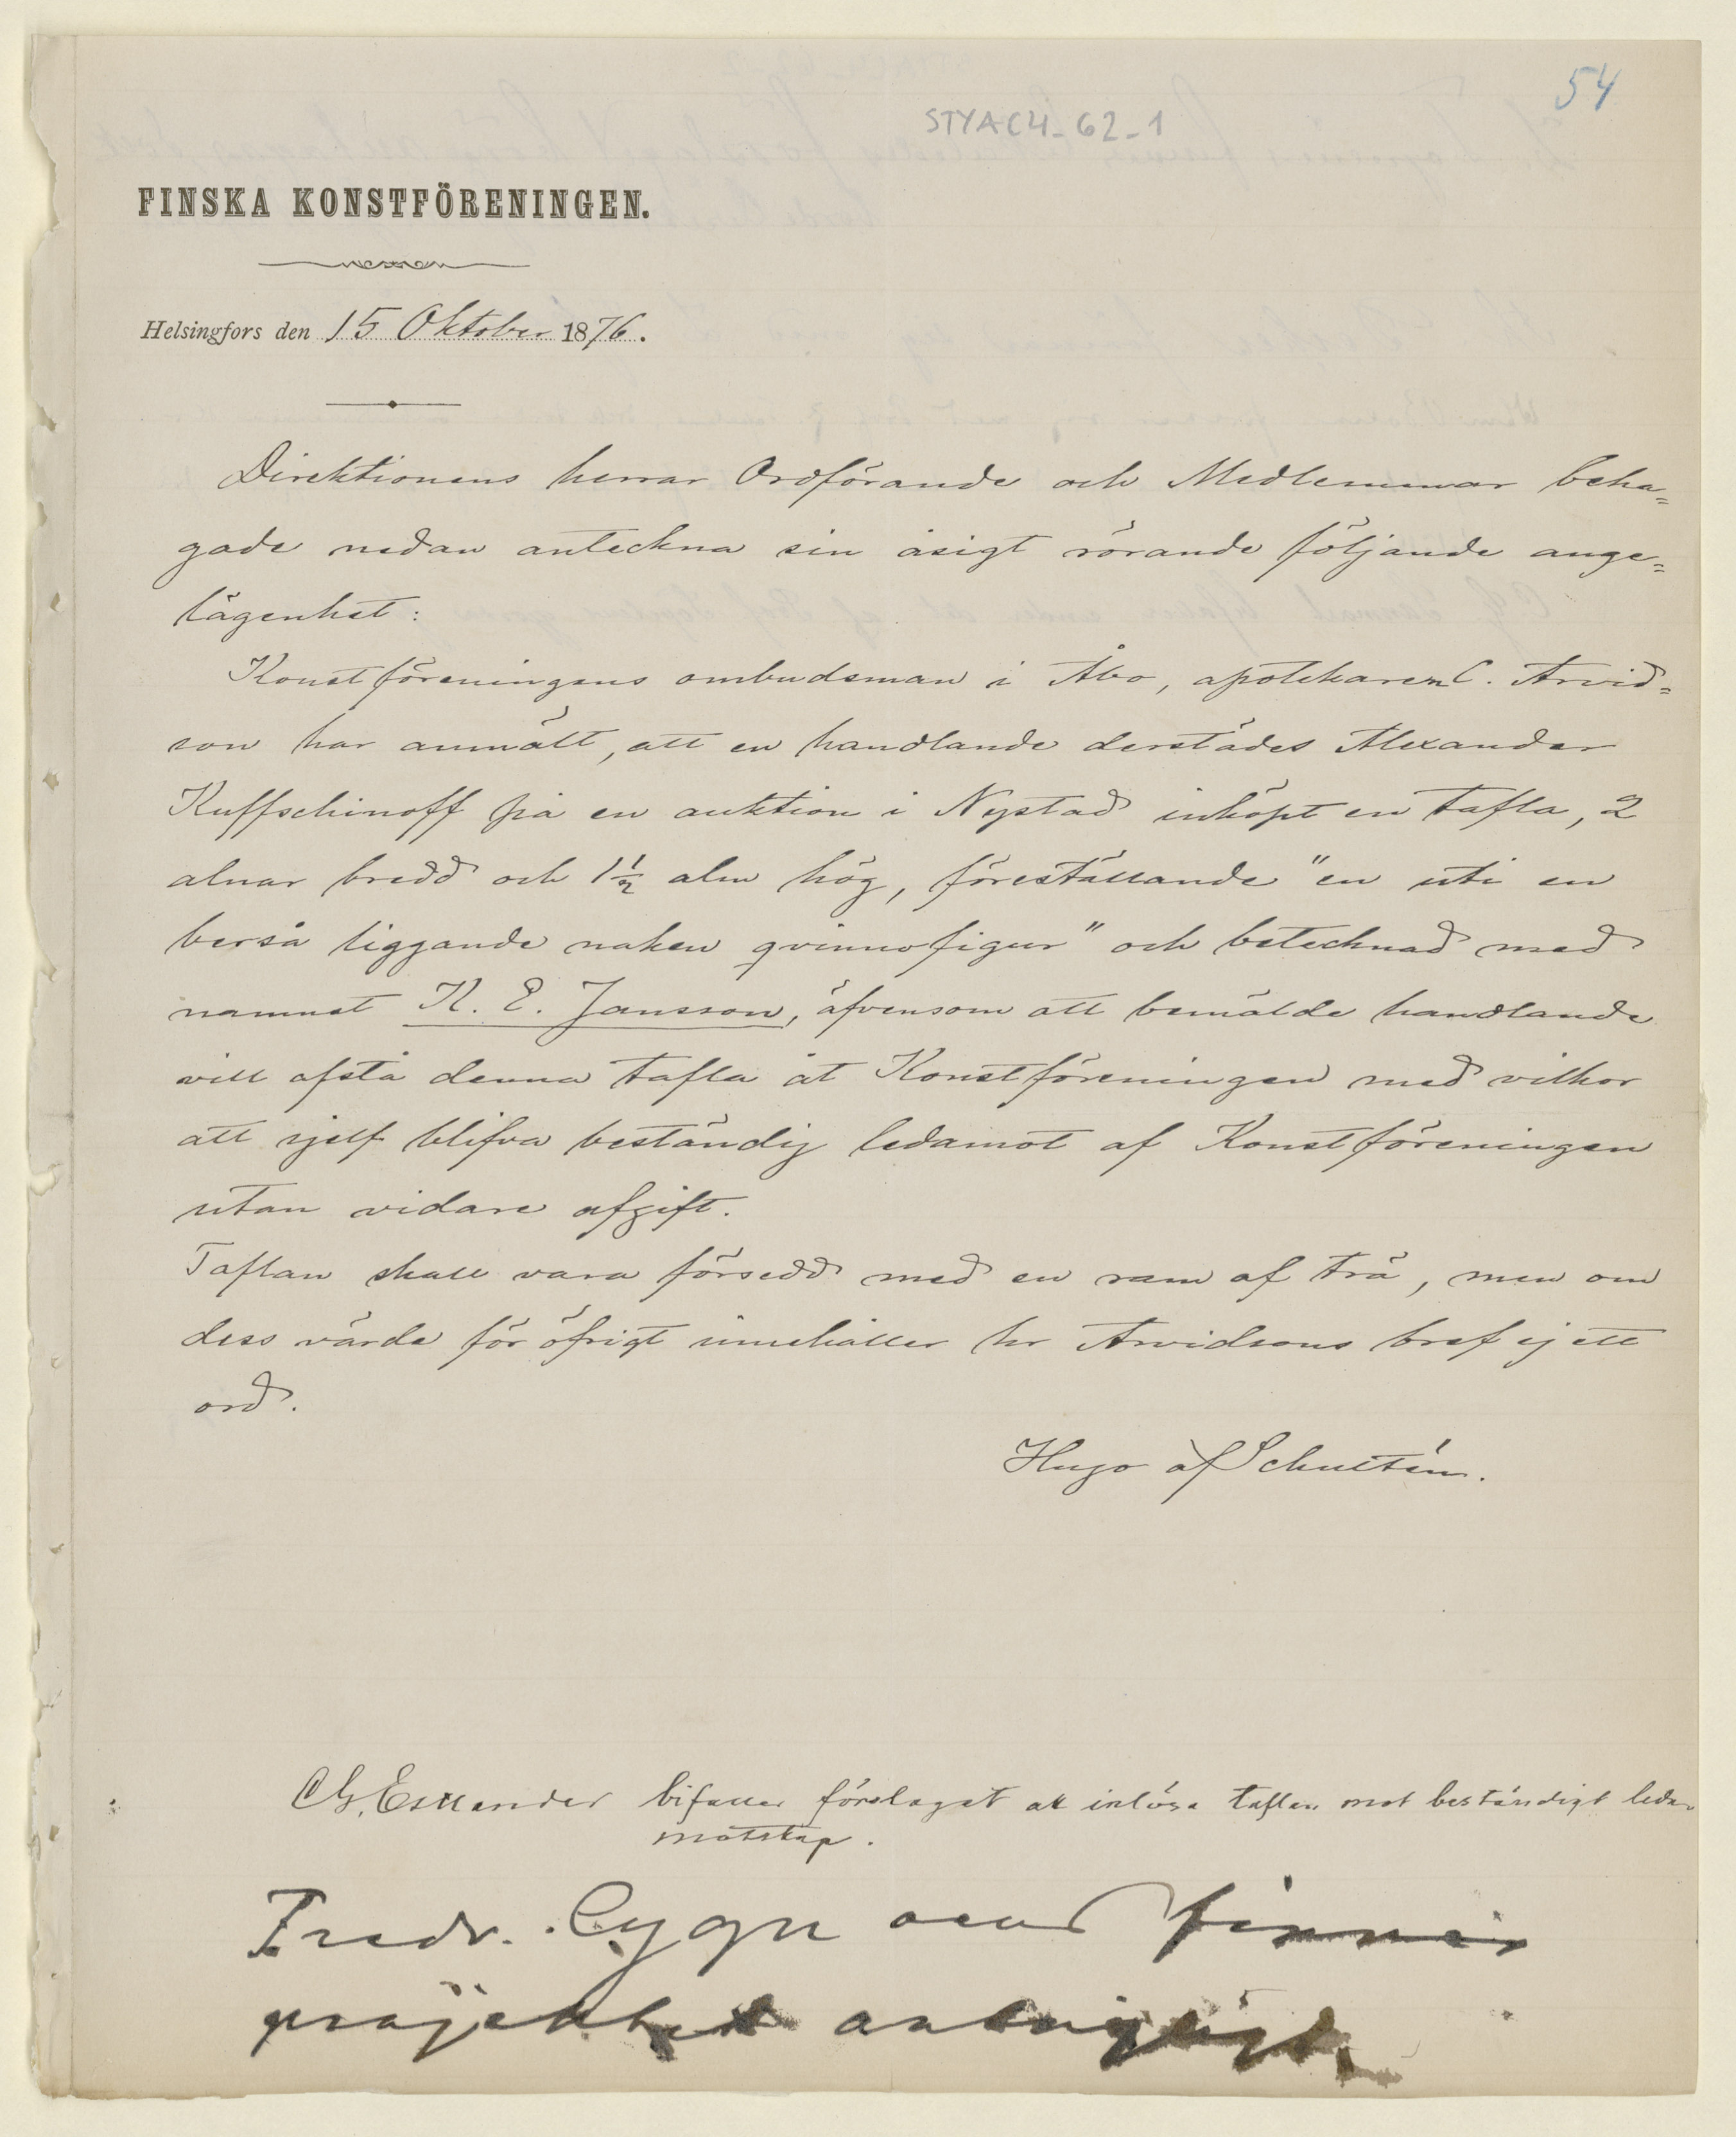 54
STYAC4-62-1
FINSKA KONSTFÖRENINGEN.
Helsingfors den 15 Oktober 1876.
Direktionens herrar Ordförande och Medlemmar beha=
gade nedan anteckna sin åsigt rörande följande ange=
lägenhet:
Konstföreningens ombudsman i Åbo, apotekaren C. Arvid=
son har anmält, att en handlande derstädes Alexander
Kuffschinoff på en auktion i Nystad inköpt en tafla, 2
alnar bredd och 1½ aln hög, föreställande "en uti en
berså liggande naken qvinnofigur" och betecknad med
namnet K. E. Jansson, äfvensom att bemälde handlande
vill afstå denna tafla åt Konstföreningen med vilkor
att sjelf blifva beständig ledamot af Konstföreningen
utan vidare afgift.
Taflan skall vara försedd med en ram af trä, men om
dess värde för öfrigt innehåller hr Arvidsons bref ej ett
ord.
Hugo af Schultén.
CG. Estlander bifaller förslaget att inlösa taflan mot beständigt leda-
motskap.
Fredr. Cygnæus finner
projektet antagligt.